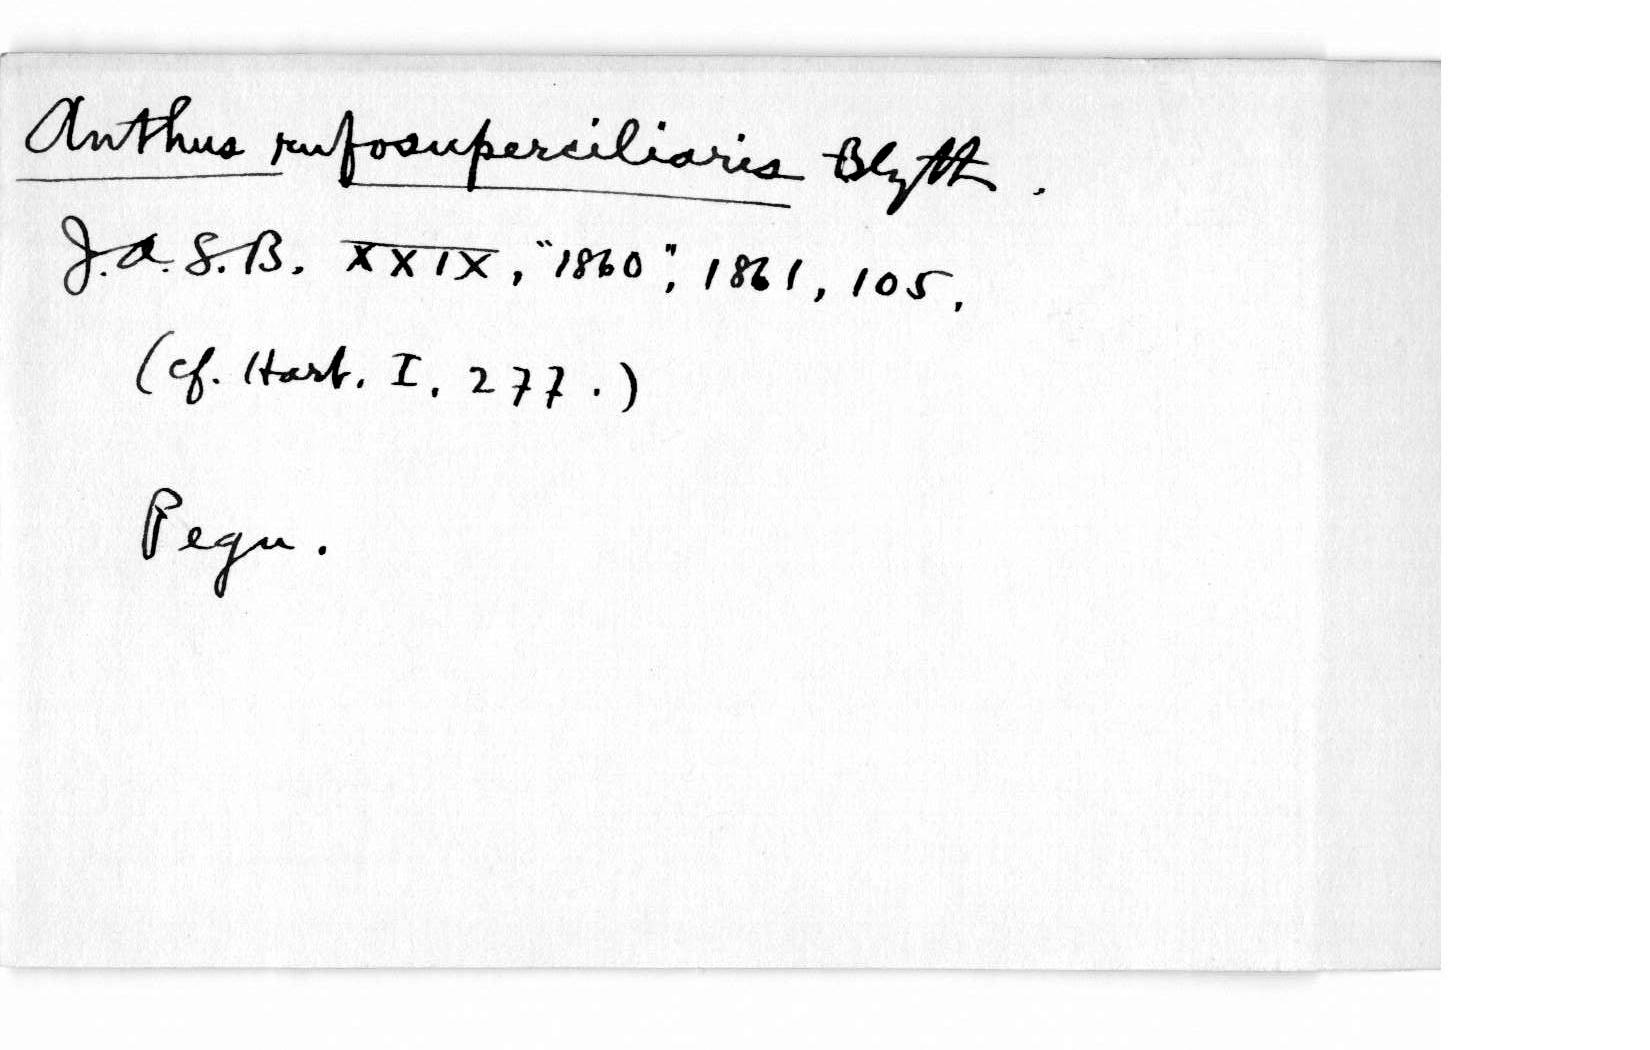 Anthus rufosuperciliaris Blyth.
J.A.S.B. XXIX, "1860", 1861, 105.
(cf. Hart. I. 277.)
Pegu.